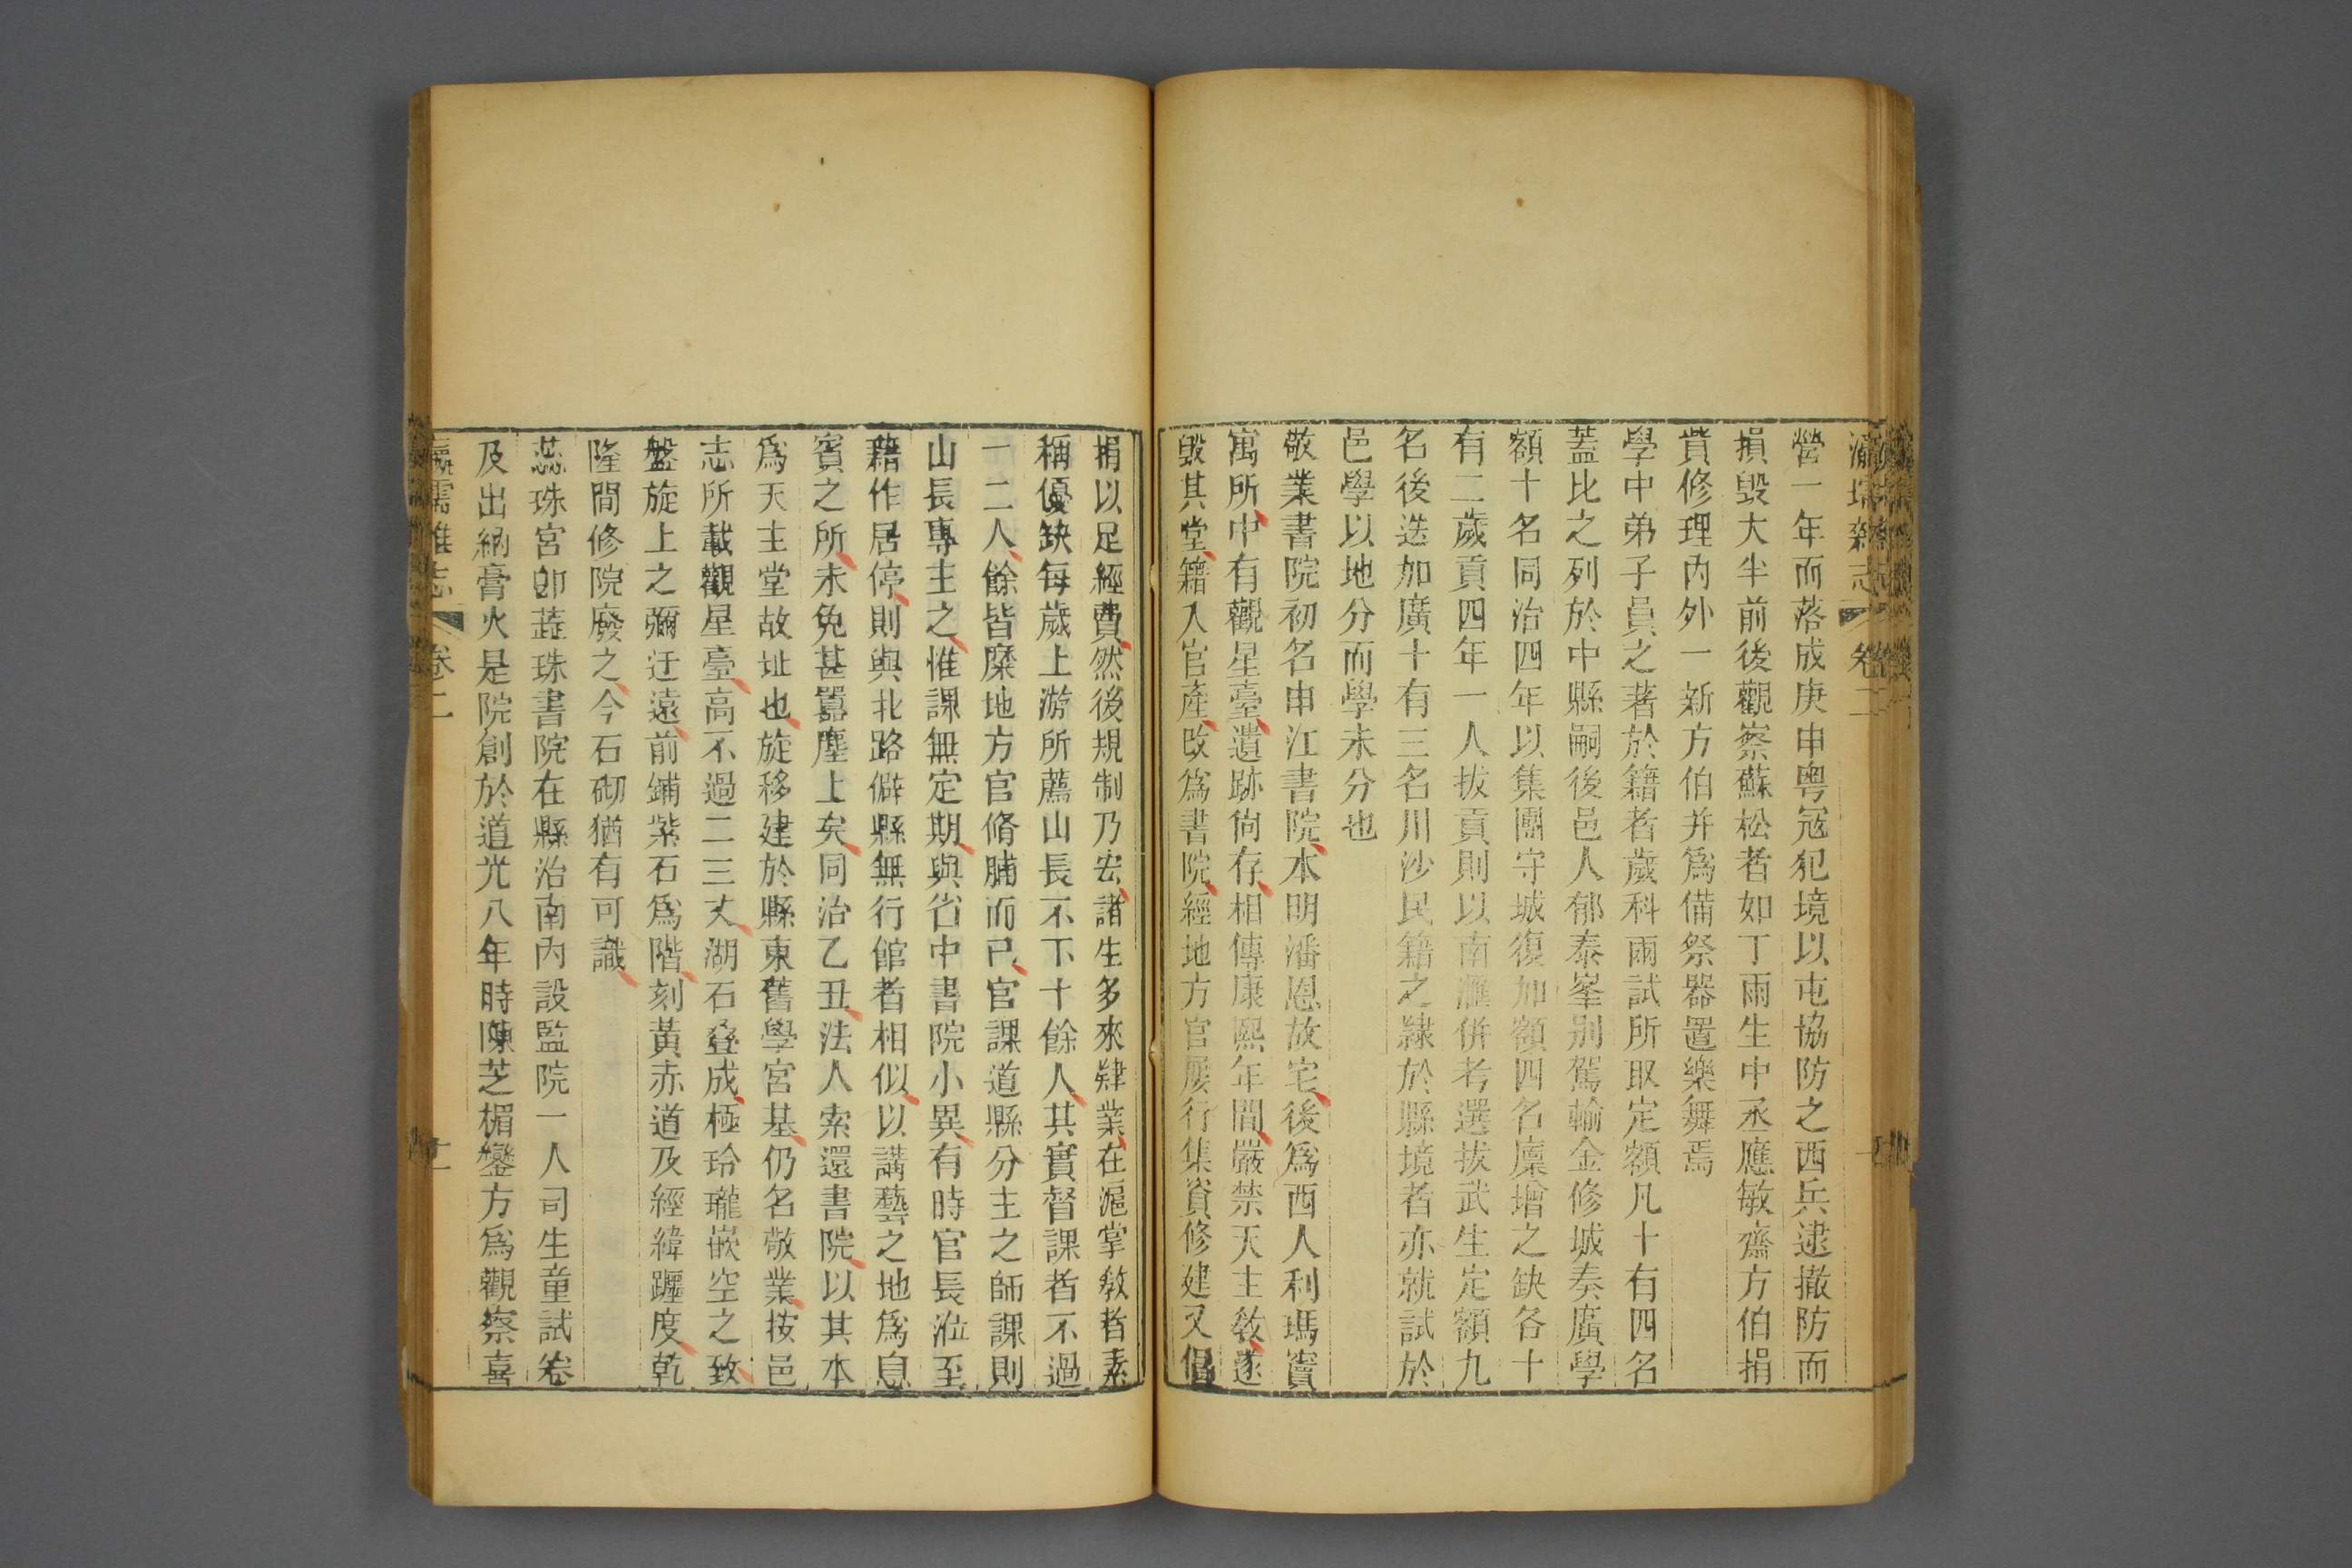 瀛壖雜志 卷二
營一年而落成庚申粤寇犯境以屯協防之西兵逮撤防而
損毀大半前後觀察蘇松者如丁雨生中丞應敏齋方伯捐
貲修理內外一新方伯并爲備祭器置樂舞焉
學中弟子員之著於籍者歲科兩試所取定額凡十有四名
蓋比之列於中縣嗣後邑人郁泰峯别駕輸金修城奏廣學
額十名同治四年以集團守城復加額四名廩增之缺各十
有二歲貢四年一人拔貢則以南滙併考選拔武生定額九
名後迭加廣十有三名川沙民籍之隸於縣境者亦就試於
邑學以地分而學未分也
敬業書院初名申江書院本明潘恩故宅後爲西人利瑪竇
寓所中有觀星臺遺跡尙存相傳康熙年間嚴禁天主敎遂
毀其堂籍入官產改爲書院經地方官屢行集資修建又倡
捐以足經費然後規制乃宏諸生多來肄業在滬掌敎者素
稱優缺每歲上游所薦山長不下十餘人其實督課者不過
一二人餘皆糜地方官脩脯而已官課道縣分主之師課則
山長專主之惟課無定期與省中書院小異有時官長涖至
藉作居停則與北路僻縣無行館者相似以講藝之地爲息
賓之所未免甚囂塵上矣同治乙丑法人索還書院以其本
爲天主堂故址也旋移建於縣東舊學宮基仍名敬業按邑
志所載觀星臺高不過二三丈湖石叠成極玲瓏嵌空之致
盤旋上之彌迂遠前鋪紫石爲階刻黃赤道及經緯躔度乾
隆間修院廢之今石砌猶有可識
蕊珠宮卽蕊珠書院在縣治南內設監院一人司生童試卷
及出納膏火是院創於道光八年時陳芝楣鑾方爲觀察喜
瀛壖雜志 卷二 十二